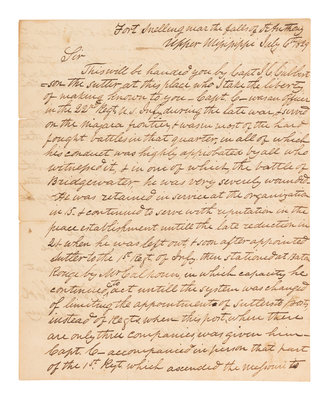 Fort Snelling near the falls of St Anthony
Upper Mississippi July 6th 1829
Sir
This will be handed you by Capt. J. C. Culbert
son the sutler at this place who I take the liberty
of making known to you – Capt. C – was an officer
in the 22nd Regt U.S. Infy during the late war, & served
on the Niagara frontier, & was in most of the hard
fought battles in that quarter, in all of which
his conduct was highly approbated by all who
witnessed it, & in one of which, the battle of
Bridgewater he was very severely wounded
He was retained in service at the organization
in 15. & continued to serve with reputation in the
peace establishment untill the late reduction in
21 when he was left out, & soon after appointed
sutler to the 1st Regt of Infy, then stationed at Baton
Rouge by Mr Calhoun, in which capacity he
continued to act untill the system was changed
of limiting the appointments of Sutlers to posts
instead of Regts when this post, where there
are only three companies, was given him
Capt. C – accompanied in person that part
of the 1st Regt which ascended the Missouri to